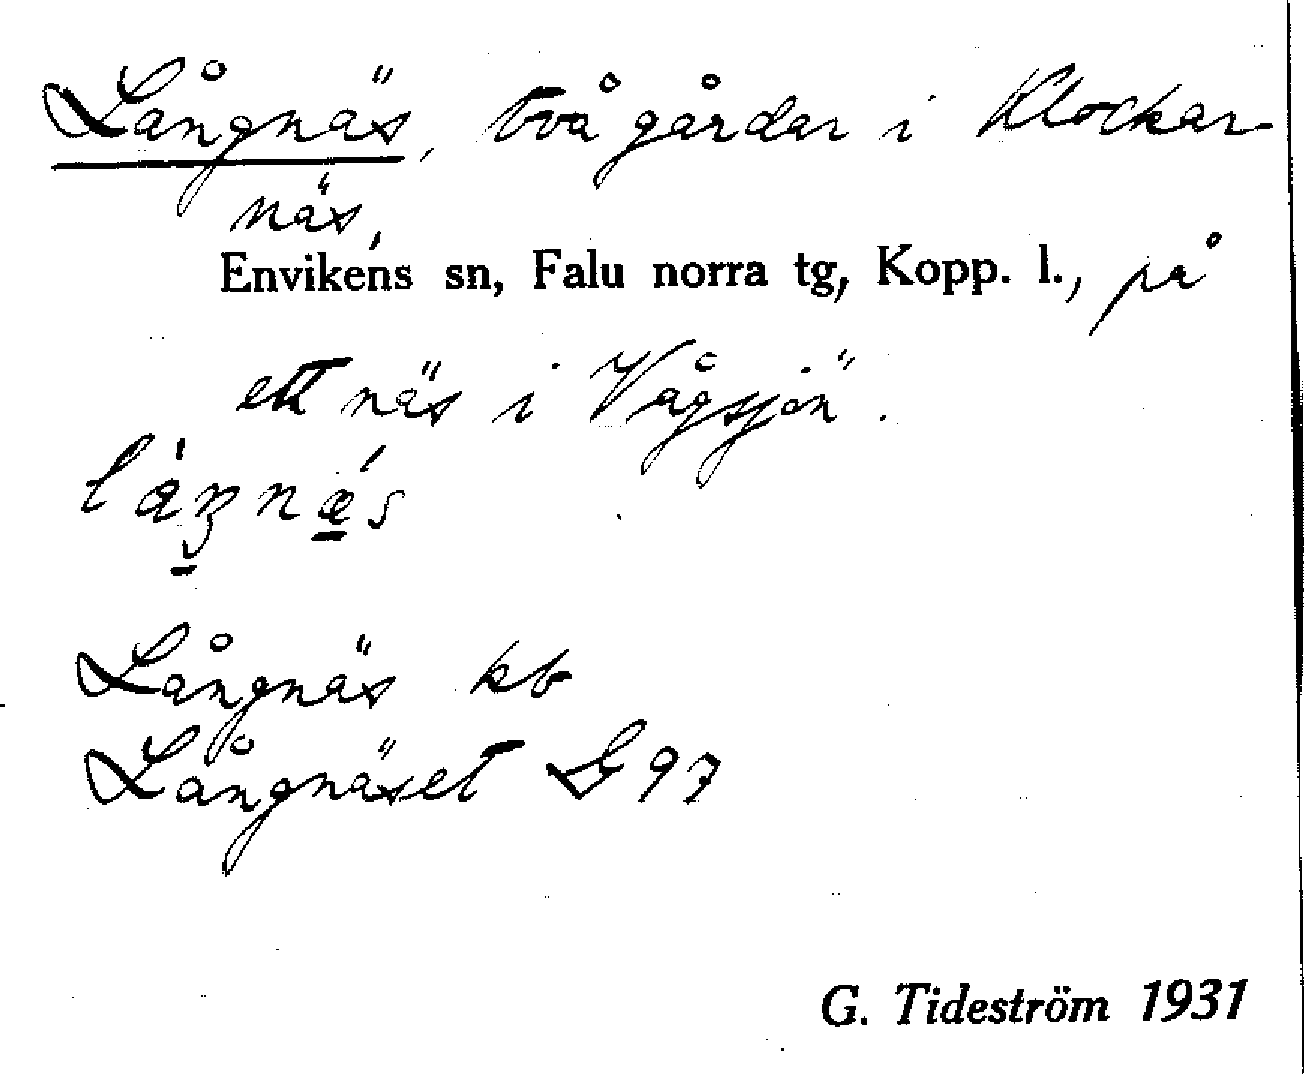 Långnäs, två gårdar i Klockar-
näs,
Envikens sn, Falu norra tg, Kopp. l., på
ett näs i Vågsjön.
Långnäs kb
Långnäset G 97
G. Tideström 1931